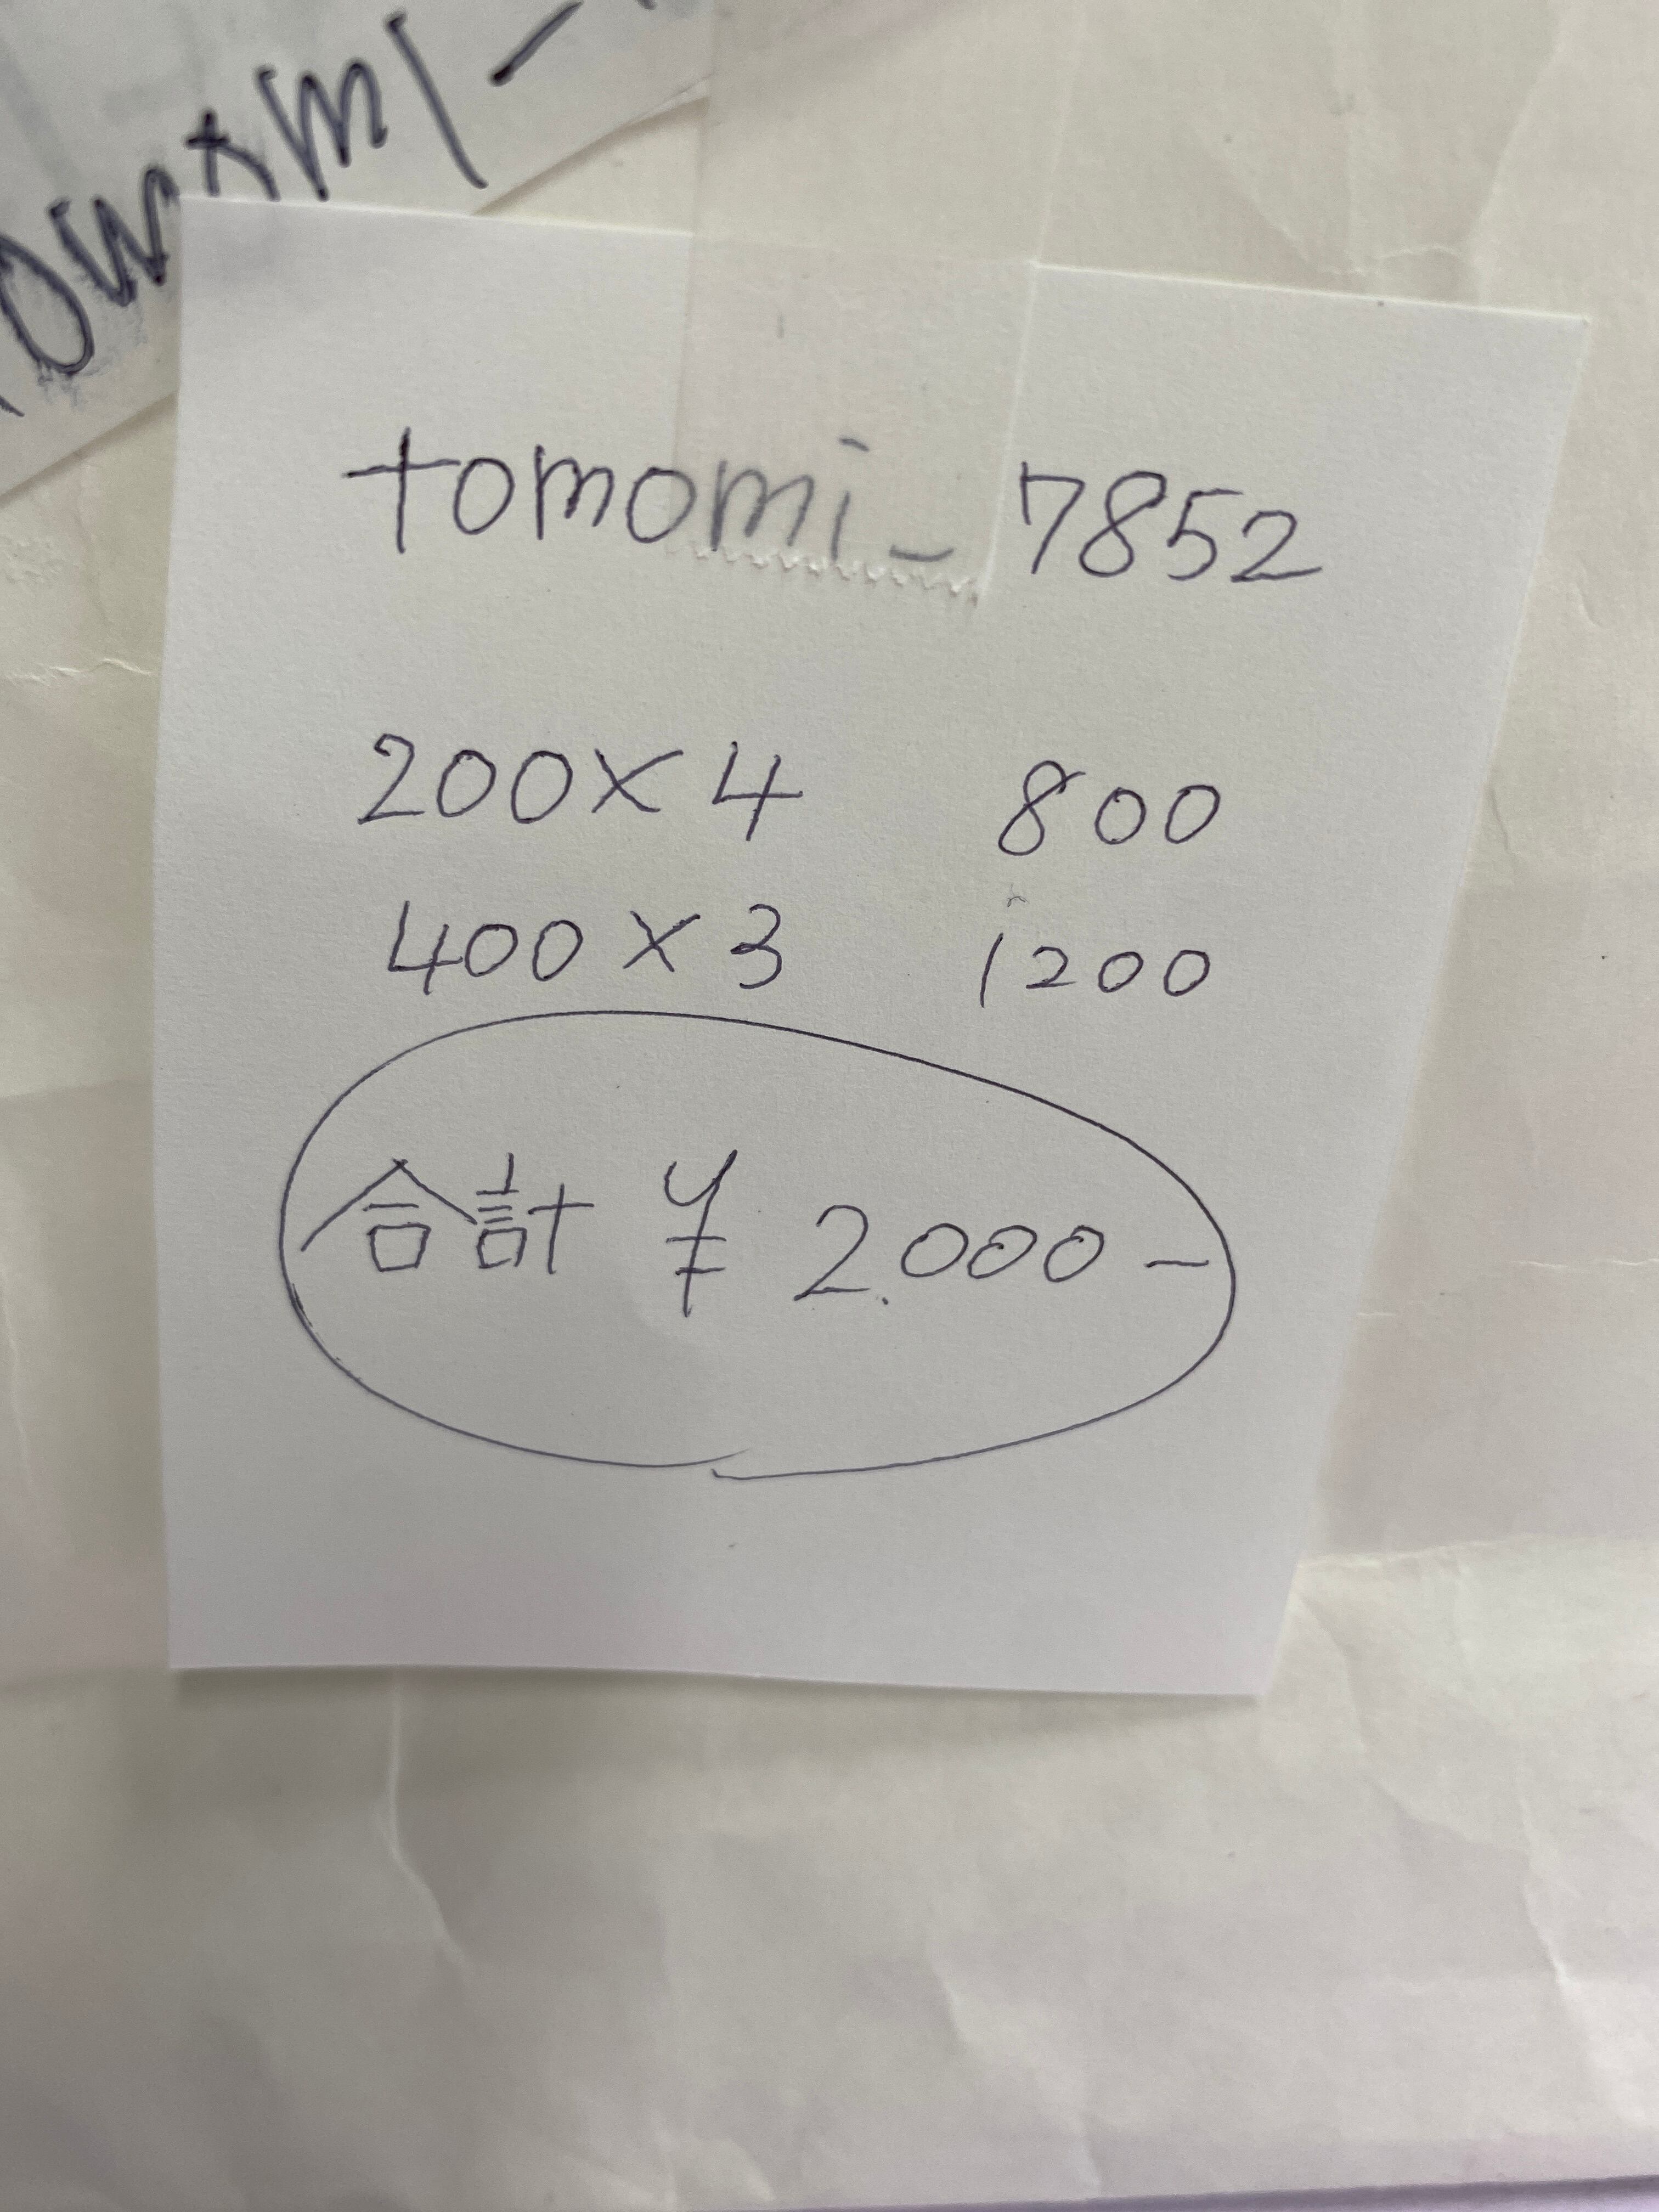 tomomi_7852
200×4 800
400×3 1200
合計 ¥2.000-